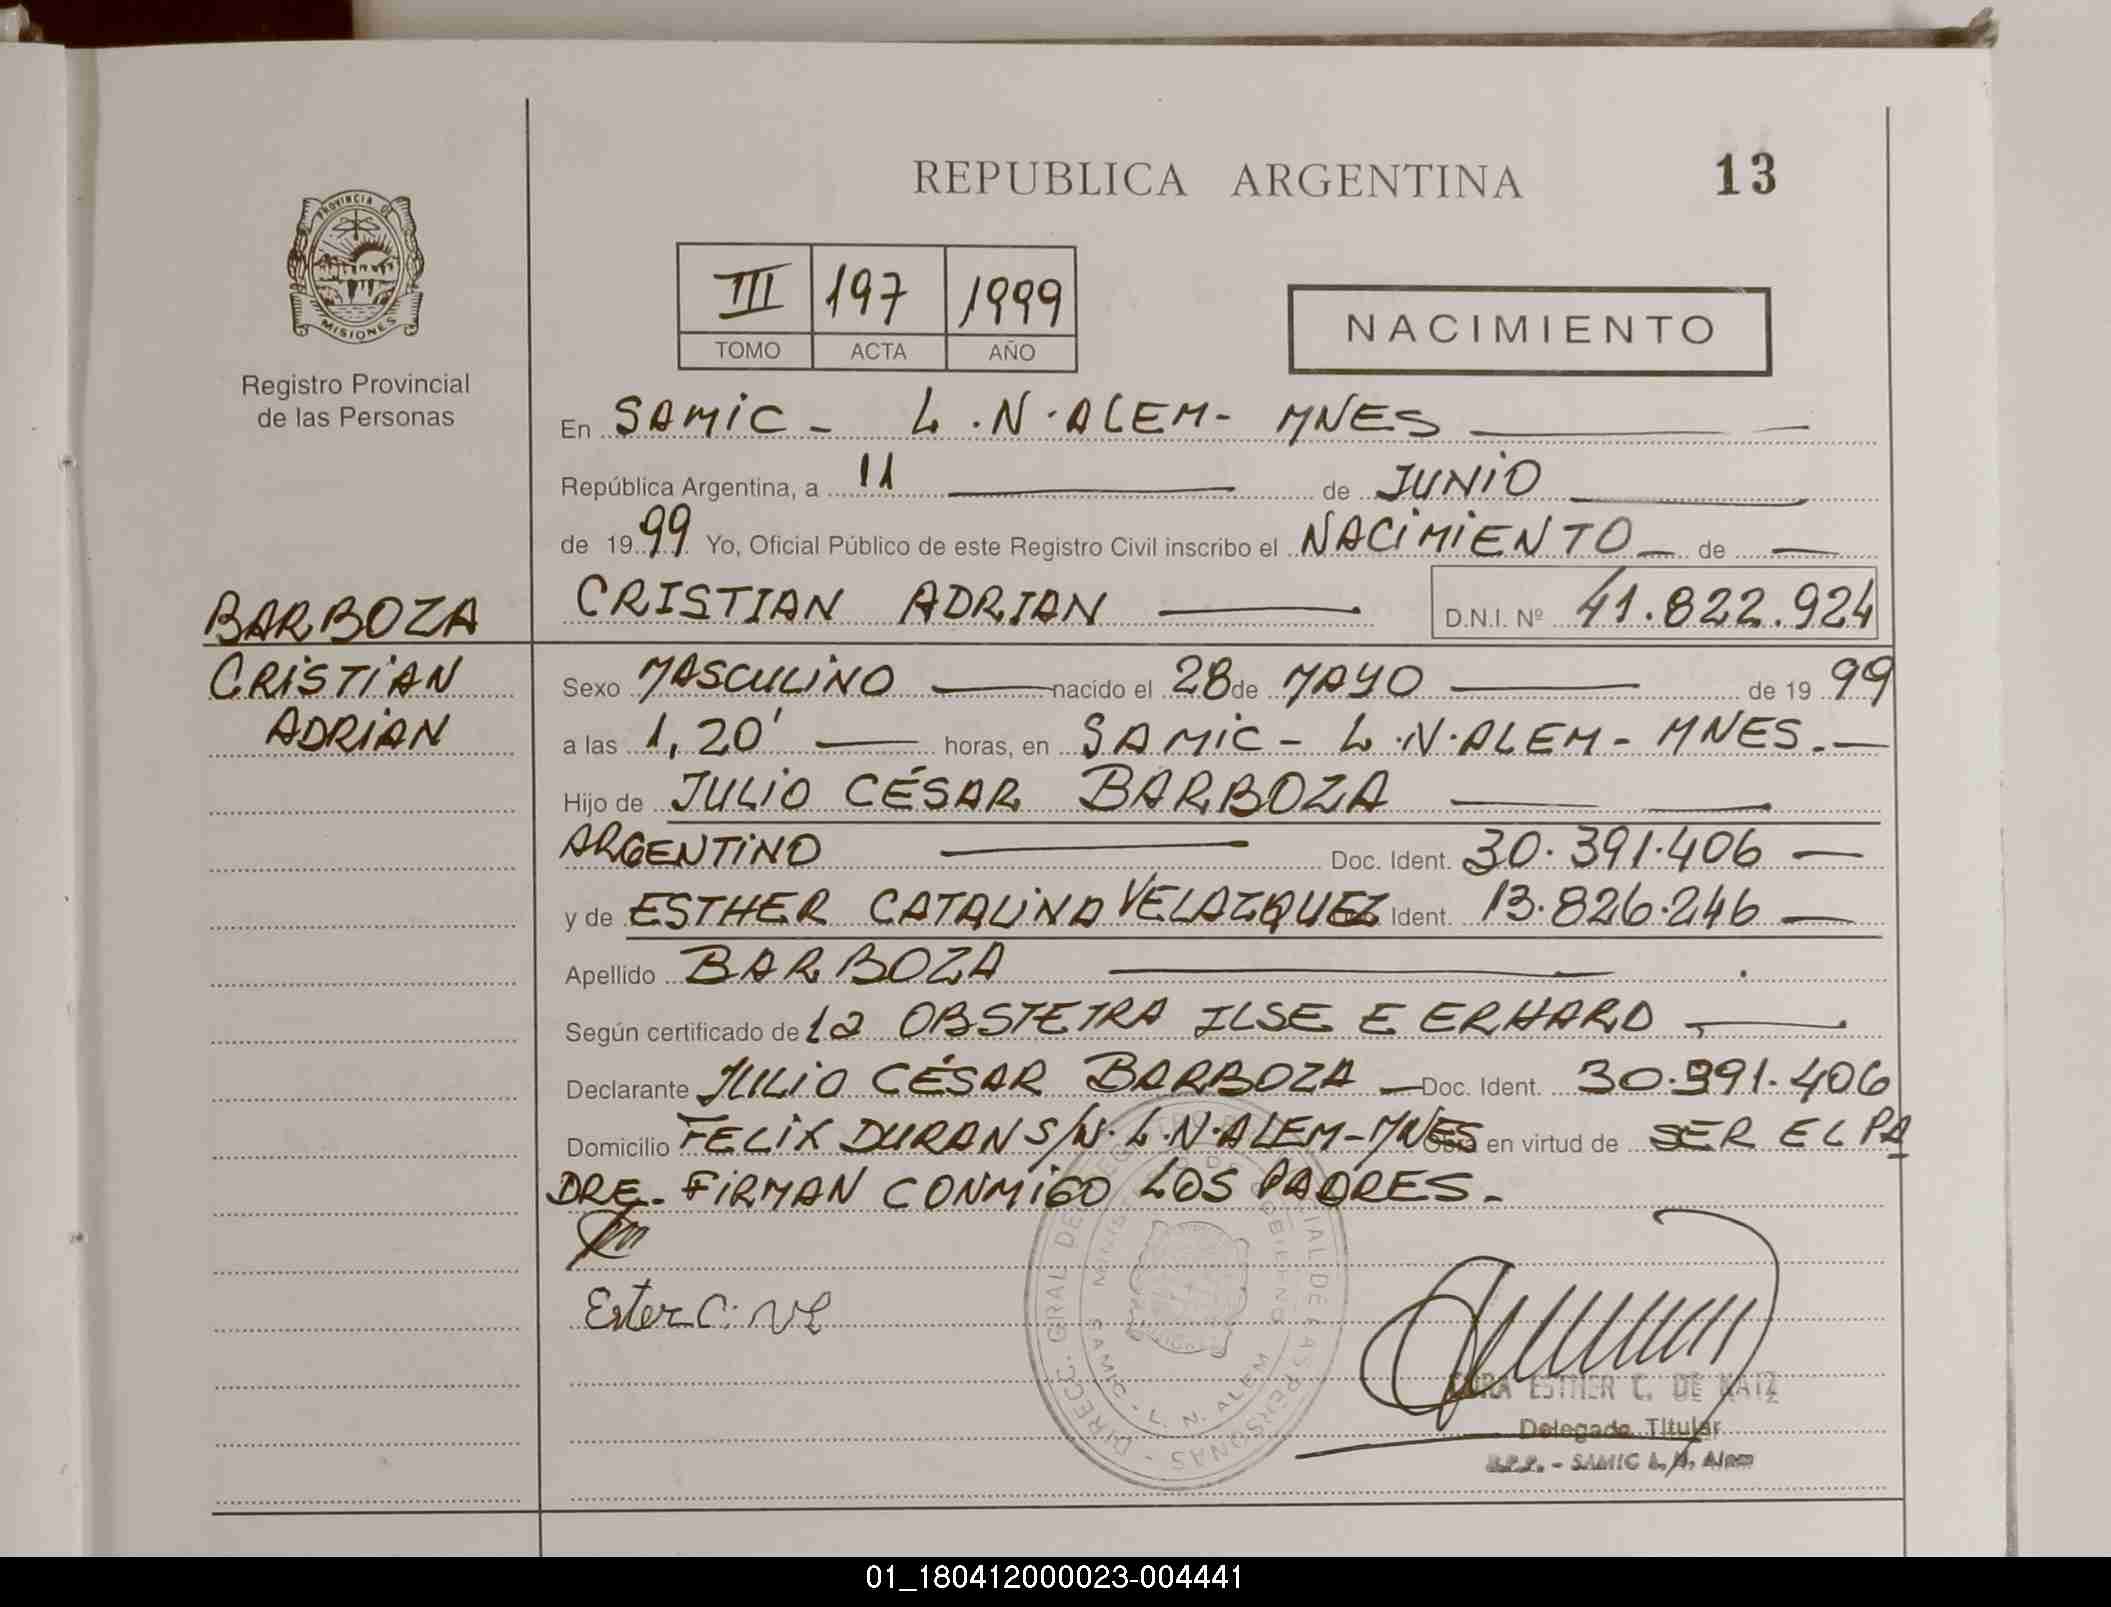 REPUBLICA ARGENTINA 13
PROVINCIA DE
MISIONES
III 197 1999
TOMO ACTA AÑO
NACIMIENTO
Registro Provincial
de las Personas
En SAMIC - L.N.ALEM - MNES
República Argentina, a 11 de JUNIO
de 1999 Yo, Oficial Público de este Registro Civil inscribo el NACIMIENTO de
CRISTIAN ADRIAN D.N.I. Nº 41.822.924
BARBOZA
CRISTIAN
ADRIAN
Sexo MASCULINO nacido el 28 de MAYO de 1999
a las 1,20' horas, en SAMIC - L.N.ALEM - MNES.
Hijo de JULIO CÉSAR BARBOZA
ARGENTINO Doc. Ident. 30.391.406
y de ESTHER CATALINA VELAZQUEZ Ident. 13.826.246
Apellido BARBOZA
Según certificado de la OBSTETRA ILSE E ERHARD
Declarante JULIO CÉSAR BARBOZA Doc. Ident. 30.391.406
Domicilio FELIX DURAN S/N. L.N.ALEM - MNES Obra en virtud de SER EL PA
DRE. FIRMAN CONMIGO LOS PADRES.
Ester C.
ESTHER C. DE
Delegada Titular
R.P.P. - SAMIC L. N. Alem
DIRECC. GRAL DE DE LAS PERSONAS
SAMIC - L. N. ALEM
01_180412000023-004441